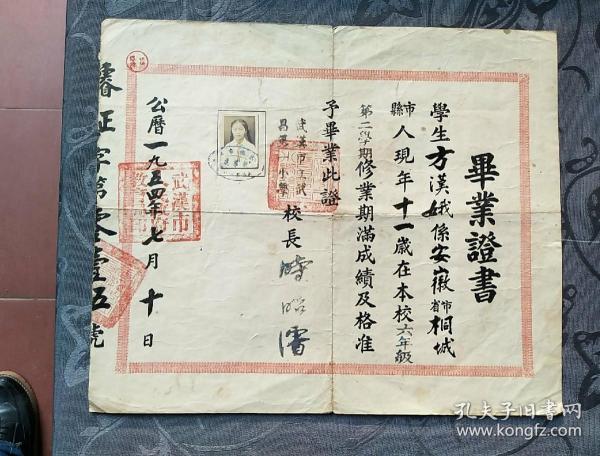 畢業證書
學生方漢娥係安徽省市桐城
縣市人現年十一歲在本校六年級
第二學期修業期滿成績及格准
予畢業此證
武漢市立武
昌第一小學
校長
公曆一九五四年七月十日
證字第零壹五號
武漢市
孔夫子旧书网
www.kongfz.com